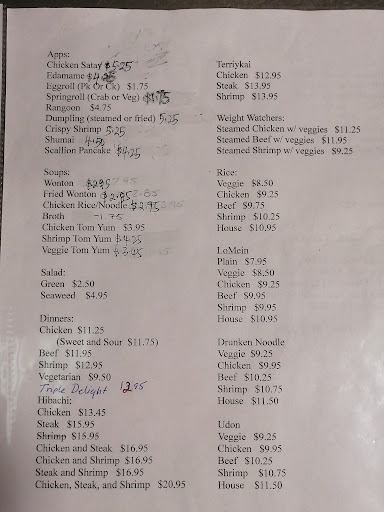 Apps:
Chicken Satay $5.25
Edamame $4.25
Eggroll (Pk Or Ck) $1.75
Springroll (Crab or Veg) $1.75
Rangoon $4.75
Dumpling (steamed or fried) 5.25
Crispy Shrimp 5.25
Shumai 4.25
Scallion Pancake $4.25
Soups:
Wonton $2.95
Fried Wonton $2.95
Chicken Rice/Noodle $2.95
Broth -1.75
Chicken Tom Yum $3.95
Shrimp Tom Yum $4.25
Veggie Tom Yum $3.95
Salad:
Green $2.50
Seaweed $4.95
Dinners:
Chicken $11.25
(Sweet and Sour $11.75)
Beef $11.95
Shrimp $12.95
Vegetarian $9.50
Triple Delight 12.95
Hibachi:
Chicken $13.45
Steak $15.95
Shrimp $15.95
Chicken and Steak $16.95
Chicken and Shrimp $16.95
Steak and Shrimp $16.95
Chicken, Steak, and Shrimp $20.95
Terriykai
Chicken $12.95
Steak $13.95
Shrimp $13.95
Weight Watchers:
Steamed Chicken w/ veggies $11.25
Steamed Beef w/ veggies $11.95
Steamed Shrimp w/ veggies $9.25
Rice:
Veggie $8.50
Chicken $9.25
Beef $9.75
Shrimp $10.25
House $10.95
LoMein
Plain $7.95
Veggie $8.50
Chicken $9.25
Beef $9.95
Shrimp $9.95
House $10.95
Drunken Noodle
Veggie $9.25
Chicken $9.95
Beef $10.25
Shrimp $10.75
House $11.50
Udon
Veggie $9.25
Chicken $9.95
Beef $10.25
Shrimp $10.75
House $11.50